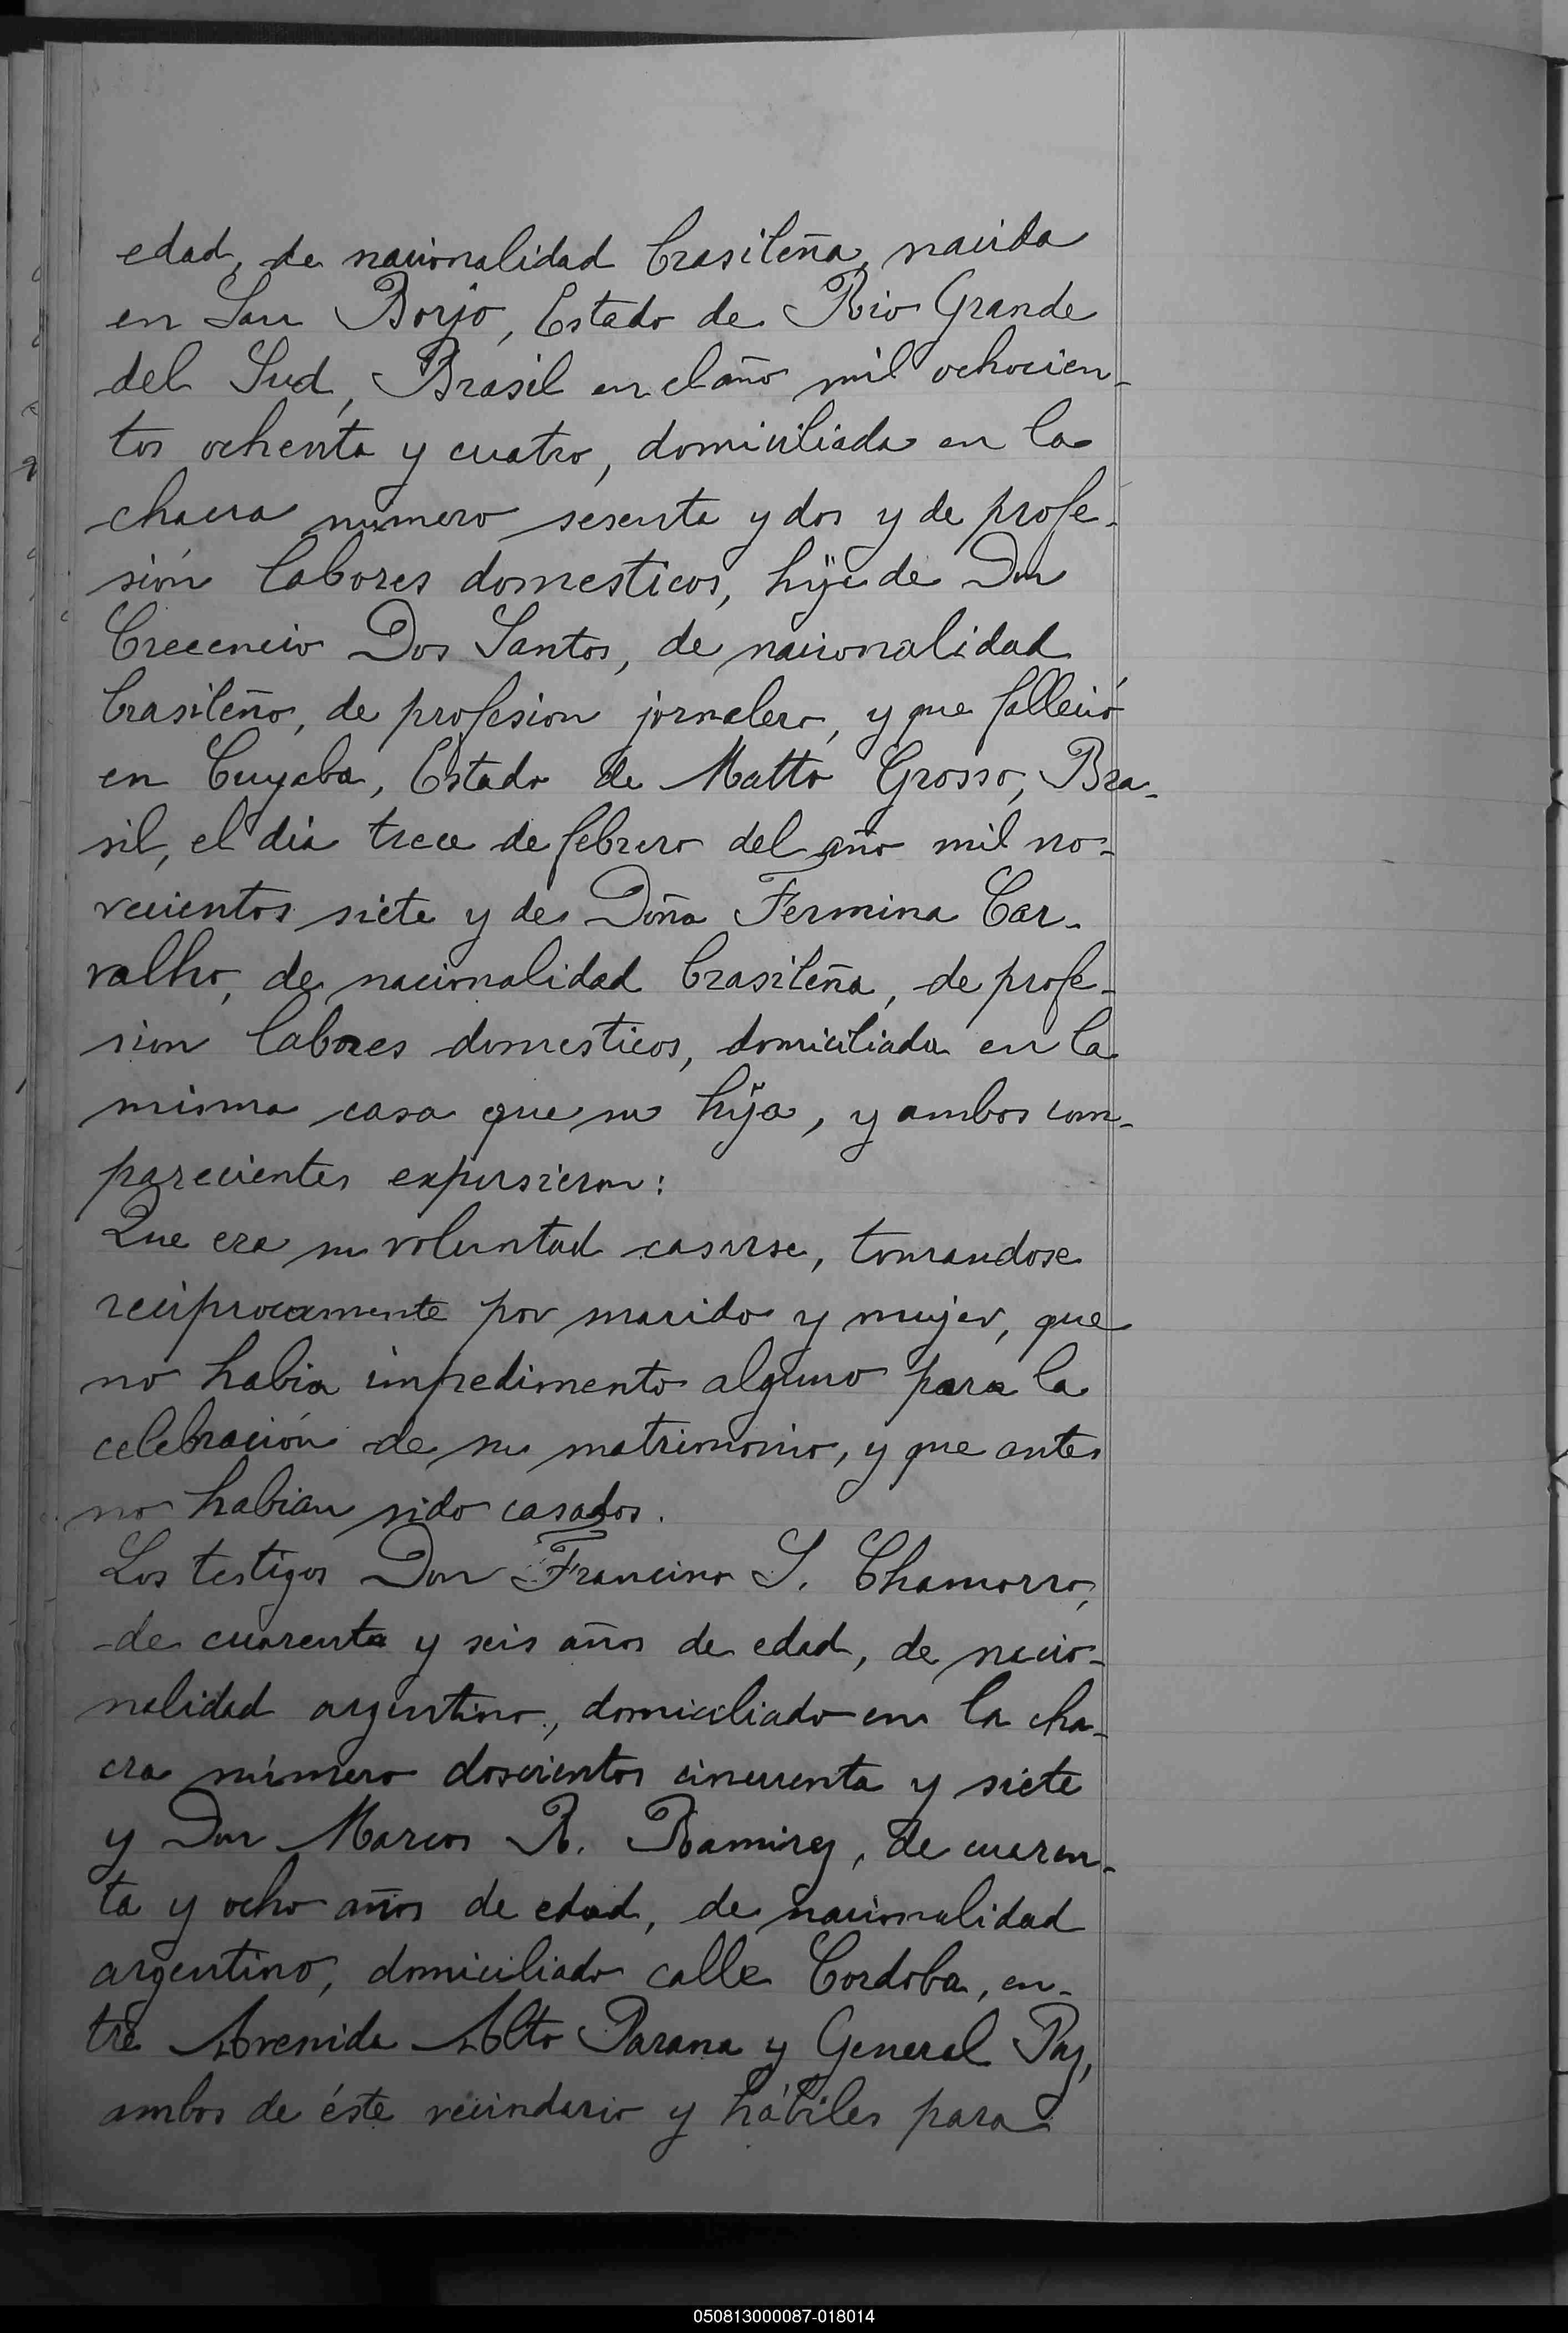 edad, de nacionalidad brasileña, nacida
en San Borjo, Estado de Rio Grande
del Sud, Brasil en el año mil ochocien-
tos ochenta y cuatro, domiciliada en la
chacra numero sesenta y dos y de profe-
sión labores domesticos, hija de Don
Crecencio Dos Santos, de nacionalidad
brasileño, de profesion jornalero, y que falleció
en Cuyaba, Estado de Matto Grosso, Bra-
sil, el dia trece de febrero del año mil no-
vecientos siete y de Doña Fermina Car-
valho, de nacionalidad brasileña, de profe-
sion labores domesticos, domiciliada en la
misma casa que su hija, y ambos com-
parecientes expusieron:
Que era su voluntad casarse, tomandose
reciprocamente por marido y mujer, que
no habia impedimento alguno para la
celebración de su matrimonio, y que antes
no habian sido casados.
Los testigos Don Francisco S. Chamorro,
de cuarenta y seis años de edad, de nacio-
nalidad argentino, domiciliado en la cha-
cra número doscientos cincuenta y siete
y Don Marcos R. Ramirez, de cuaren-
ta y ocho años de edad, de nacionalidad
argentino, domiciliado calle Cordoba, en-
tre Avenida Alto Parana y General Paz,
ambos de éste vecindario y hábiles para
050813000087-018014